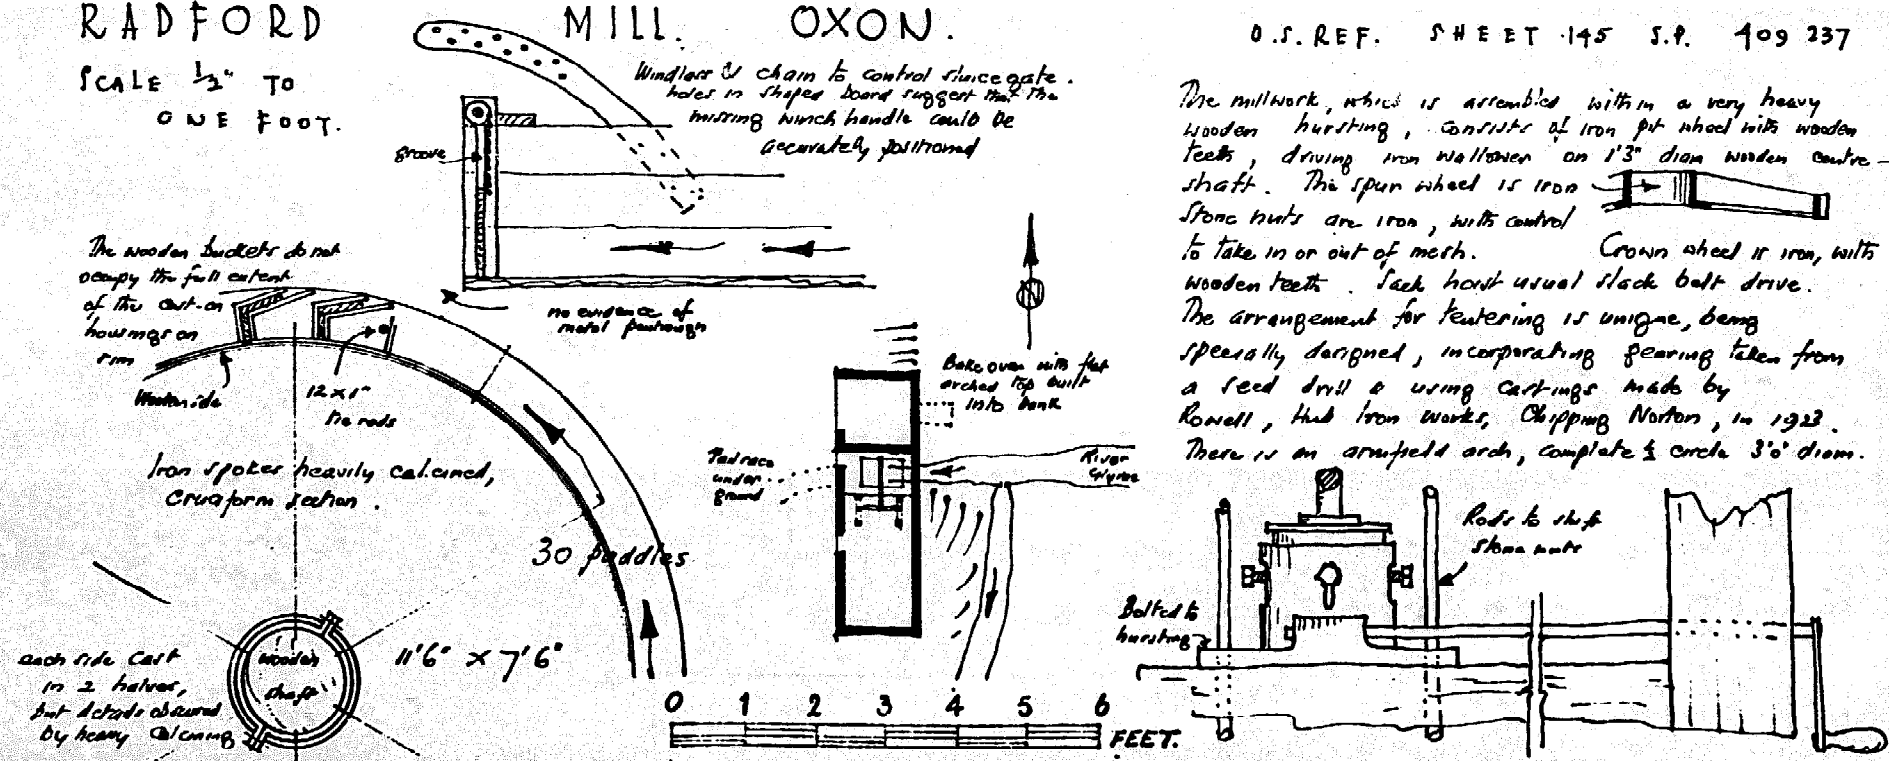 RADFORD MILL. OXON.
O.S. REF. SHEET 145 S.P. 409 237
SCALE ½" TO
ONE FOOT.
Windlass & chain to control sluice gate.
holes in shaped board suggest that the
missing winch handle could be
accurately positioned
groove
no evidence of
metal pentrough
The wooden buckets do not
occupy the full extent
of the cast-on
housings on
rim
12 x 1"
tie rods
Iron spokes heavily calcined,
cruciform section.
30 paddles
11'6" x 7'6"
each side cast
in 2 halves,
but details obscured
by heavy calcening
wooden
shaft
N
Bake oven with flat
arched top built
into bank
Tailrace
under
ground
River
Glyme
0 1 2 3 4 5 6
FEET.
The millwork, which is assembled within a very heavy
wooden hursting, consists of iron pit wheel with wooden
teeth, driving iron wallower on 1'3" diam wooden centre-
shaft. The spur wheel is iron
Stone nuts are iron, with control
to take in or out of mesh. Crown wheel is iron, with
wooden teeth. Sack hoist usual slack belt drive.
The arrangement for tentering is unique, being
specially designed, incorporating gearing taken from
a seed drill & using castings made by
Rowell, Hub Iron Works, Chipping Norton, in 1923.
There is an armfield arch, complete ½ circle 3'0" diam.
Rods to shift
stone nuts
Bolted to
hursting